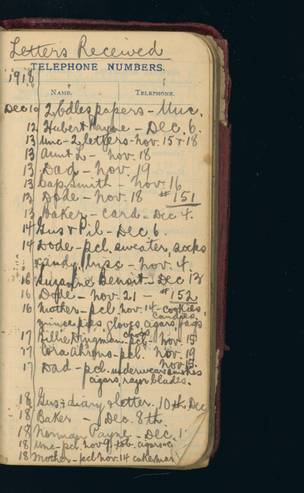 Letters Received
1918 TELEPHONE NUMBERS.
NAME. TELEPHONE.
Dec 10 2 bdles papers - Unc.
12 Hubert Payne - Dec. 6.
13 Unc - 2 letters - nov. 15 & 18
13 Aunt L - nov. 18
13 Dad - nov. 19
13 Capsmith - nov. 16
13 Dode - nov. 18 #151
13 Baker - card - Dec 4.
14 Gus & Pil - Dec 6.
14 Dode - pcl. sweater, socks
candy, misc - nov. 4.
16 Suzanne Benoit - Dec 13
16 Dode - nov. 21 - #152
16 Mother - pcl nov. 14 - cookies,
candies,
mince pies, gloves, cigars,
17 Millie pcl - nov. 15
17 Cora pcl. nov. 19
17 Dad - pcl. underwear
cigars, razor blades.
18 Gus, diary & letter. 10th Dec
18 Baker Dec. 8th.
18 Norman Payne - Dec. 1
18 Unc - pcl. nov.
18 Mother - pcl nov. 14